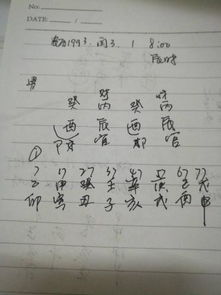 No.
DATE:
1993. 闰3. 1 8:00
辰时
男
财 财
癸 丙 癸 丙
酉 辰 酉 辰
官 官
①
7 17 27 37 47 57 67 77
乙 甲 癸 壬 辛 庚 戊
卯 寅 丑 子 亥 戌 酉 申